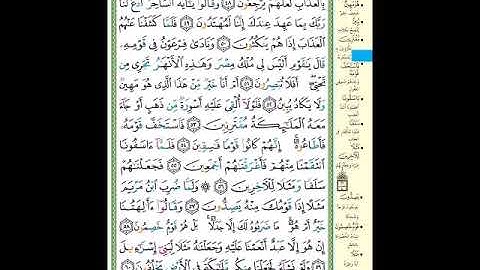 بِٱلۡعَذَابِ لَعَلَّهُمۡ يَرۡجِعُونَ ٤٨ وَقَالُواْ يَٰٓأَيُّهَ ٱلسَّاحِرُ ٱدۡعُ لَنَا
رَبَّكَ بِمَا عَهِدَ عِندَكَ إِنَّنَا لَمُهۡتَدُونَ ٤٩ فَلَمَّا كَشَفۡنَا عَنۡهُمُ
ٱلۡعَذَابَ إِذَا هُمۡ يَنكُثُونَ ٥٠ وَنَادَىٰ فِرۡعَوۡنُ فِي قَوۡمِهِۦ
قَالَ يَٰقَوۡمِ أَلَيۡسَ لِي مُلۡكُ مِصۡرَ وَهَٰذِهِ ٱلۡأَنۡهَٰرُ تَجۡرِي مِن
تَحۡتِيٓۚ أَفَلَا تُبۡصِرُونَ ٥١ أَمۡ أَنَا۠ خَيۡرٞ مِّنۡ هَٰذَا ٱلَّذِي هُوَ مَهِينٞ
وَلَا يَكَادُ يُبِينُ ٥٢ فَلَوۡلَآ أُلۡقِيَ عَلَيۡهِ أَسۡوِرَةٞ مِّن ذَهَبٍ أَوۡ جَآءَ
مَعَهُ ٱلۡمَلَٰٓئِكَةُ مُقۡتَرِنِينَ ٥٣ فَٱسۡتَخَفَّ قَوۡمَهُۥ
فَأَطَاعُوهُۚ إِنَّهُمۡ كَانُواْ قَوۡمٗا فَٰسِقِينَ ٥٤ فَلَمَّآ ءَاسَفُونَا
ٱنتَقَمۡنَا مِنۡهُمۡ فَأَغۡرَقۡنَٰهُمۡ أَجۡمَعِينَ ٥٥ فَجَعَلۡنَٰهُمۡ
سَلَفٗا وَمَثَلٗا لِّلۡأٓخِرِينَ ٥٦ وَلَمَّا ضُرِبَ ٱبۡنُ مَرۡيَمَ
مَثَلًا إِذَا قَوۡمُكَ مِنۡهُ يَصِدُّونَ ٥٧ وَقَالُوٓاْ ءَأَٰلِهَتُنَا
خَيۡرٌ أَمۡ هُوَۚ مَا ضَرَبُوهُ لَكَ إِلَّا جَدَلَۢاۚ بَلۡ هُمۡ قَوۡمٌ خَصِمُونَ ٥٨
إِنۡ هُوَ إِلَّا عَبۡدٌ أَنۡعَمۡنَا عَلَيۡهِ وَجَعَلۡنَٰهُ مَثَلٗا لِّبَنِيٓ إِسۡرَٰٓءِيلَ
٥٩ وَلَوۡ نَشَآءُ لَجَعَلۡنَا مِنكُم مَّلَٰٓئِكَةٗ فِي ٱلۡأَرۡضِ يَخۡلُفُونَ ٦٠